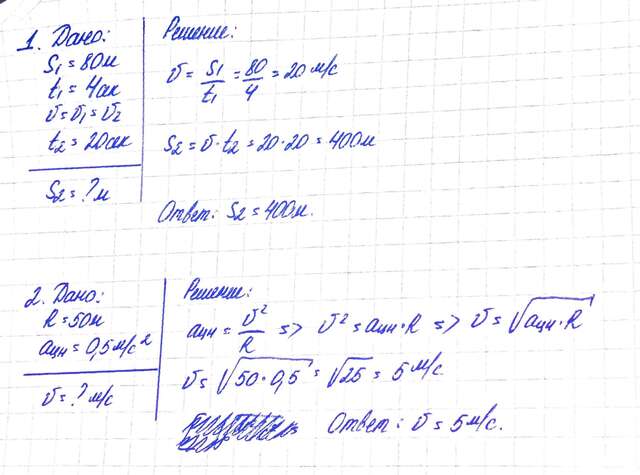 1. Дано:
S₁ = 80м
t₁ = 4сек
v = v₁ = v₂
t₂ = 20сек
S₂ = ? м
Решение:
v = S₁/t₁ = 80/4 = 20 м/с
S₂ = v · t₂ = 20 · 20 = 400м
Ответ: S₂ = 400м.
2. Дано:
R = 50м
aцн = 0,5 м/с²
v = ? м/с
Решение:
aцн = v²/R => v² = aцн · R => v = √(aцн · R)
v = √(50 · 0,5) = √25 = 5 м/с
Ответ: v = 5 м/с.